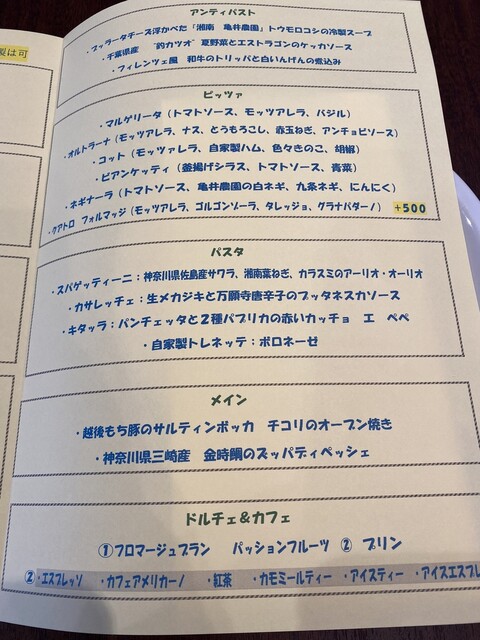 製は可
アンティパスト
・ブッラータチーズ浮かべた「湘南 亀井農園」トウモロコシの冷製スープ
・千葉県産 "釣カツオ" 夏野菜とエストラゴンのケッカソース
・フィレンツェ風 和牛のトリッパと白いんげんの煮込み
ピッツァ
・マルゲリータ(トマトソース、モッツァレラ、バジル)
・オルトラーナ(モッツァレラ、ナス、とうもろこし、赤玉ねぎ、アンチョビソース)
・コット(モッツァレラ、自家製ハム、色々きのこ、胡椒)
・ビアンケッティ(釜揚げシラス、トマトソース、青菜)
・ネギナーラ(トマトソース、亀井農園の白ネギ、九条ネギ、にんにく)
・クアトロ フォルマッジ(モッツァレラ、ゴルゴンゾーラ、タレッジョ、グラナパダーノ) +500
パスタ
・スパゲッティーニ:神奈川県佐島産サワラ、湘南葉ねぎ、カラスミのアーリオ・オーリオ
・カサレッチェ:生メカジキと万願寺唐辛子のプッタネスカソース
・キタッラ:パンチェッタと2種パプリカの赤いカッチョ エ ペペ
・自家製トレネッテ:ボロネーゼ
メイン
・越後もち豚のサルティンボッカ チコリのオーブン焼き
・神奈川県三崎産 金時鯛のズッパディペッシェ
ドルチェ&カフェ
①フロマージュブラン パッションフルーツ ② プリン
②・エスプレッソ ・カフェアメリカーノ ・紅茶 ・カモミールティー ・アイスティー ・アイスエスプレ